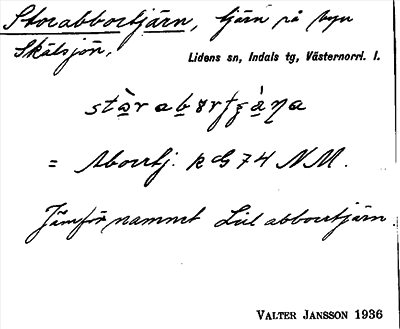 Storabborrtjärn, tjärn på byn
Skälsjön,
Lidens sn, Indals tg, Västernorrl. l.
= Aborrtj. k G 74 NM.
Jämför namnet Lillabborrtjärn.
VALTER JANSSON 1936